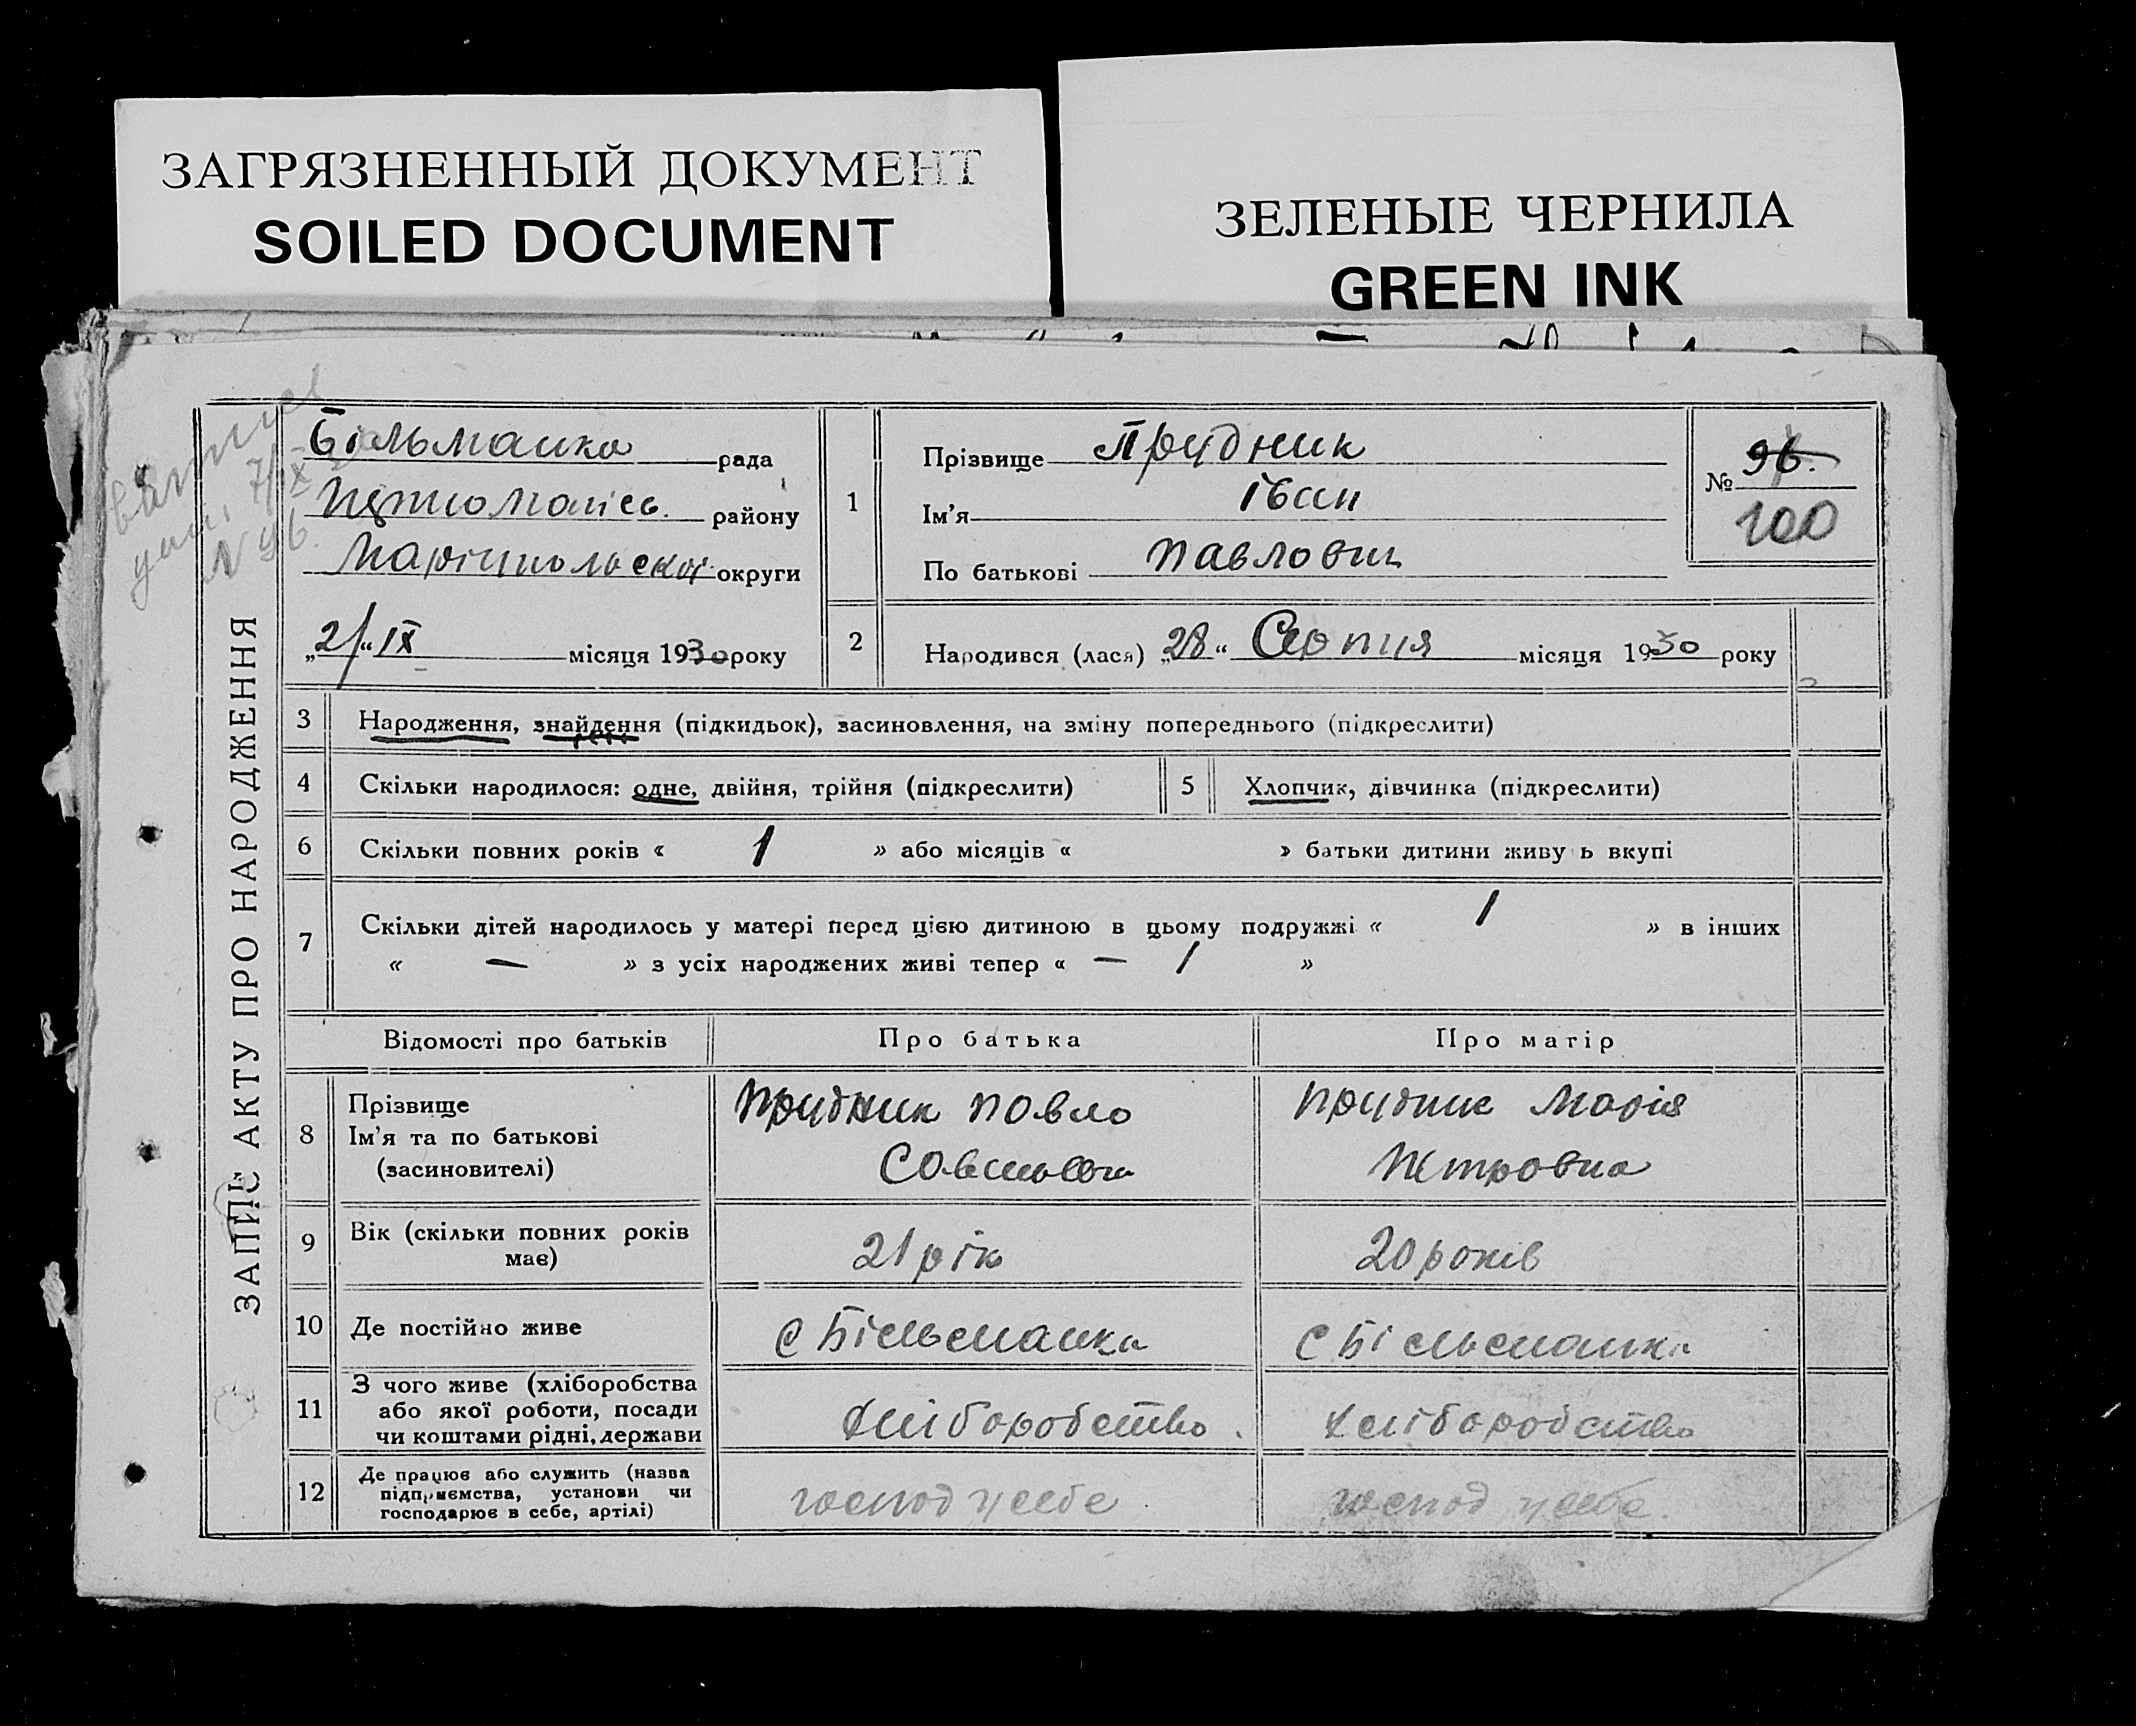 ЗАГРЯЗНЕННЫЙ ДОКУМЕНТ
SOILED DOCUMENT
ЗЕЛЕНЫЕ ЧЕРНИЛА
GREEN INK
ЗАПИС АКТУ ПРО НАРОДЖЕННЯ
Більманка рада
району
Маріупольськ округи
„2/“ IX місяця 1930 року
1
Прізвище Прудник
Ім'я Іван
По батькові Павлович
№ 96.
100
2
Народився (лася) „28“ Серпня місяця 1930 року
3 Народження, знайдення (підкидьок), засиновлення, на зміну попереднього (підкреслити)
4 Скільки народилося: одне, двійня, трійня (підкреслити) 5 Хлопчик, дівчинка (підкреслити)
6 Скільки повних років « 1 » або місяців « » батьки дитини живу ь вкупі
7 Скільки дітей народилось у матері перед цією дитиною в цьому подружжі « 1 » в інших
« — » з усіх народжених живі тепер « — 1 »
Відомості про батьків Про батька Про матір
8
Прізвище
Ім'я та по батькові
(засиновителі)
Прудник Павло
Прудник Марія
Петровна
9 Вік (скільки повних років
має)
21 рік 20 років
10 Де постійно живе с Більманка с Більманка
11
З чого живе (хліборобства
або якої роботи, посади
чи коштами рідні, держави
хліборобство. хліборобство
12
Де працює або служить (назва
підприємства, установи чи
господарює в себе, артілі)
господ у себе господ у себе.